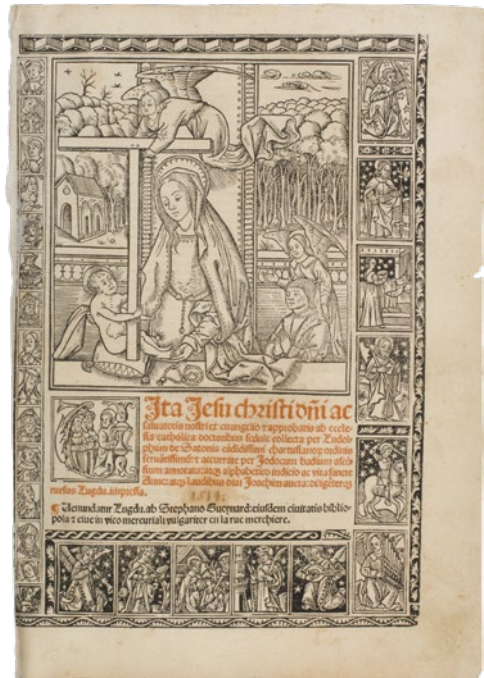 Ita Jesu christi dñi ac
saluatoris nostri ex euangelio ⁊ approbatis ab eccle-
sia catholica doctoribus sedule collecta per Ludol-
phum de Saxonia
ordinis
accurate per Jodocum badium ascen-
sium annotata: atq; alphabetico indicio ac vita sancte
Anne: atq; laudibus diui Joachim aucta: diligenterq;
rursus Lugdu. impressa.
1514
¶ Uenundatur Lugdu. ab Stephano Gueynard: eiusdem ciuitatis biblio-
pola ⁊ ciue in vico mercuriali vulgariter en la rue merchiere.